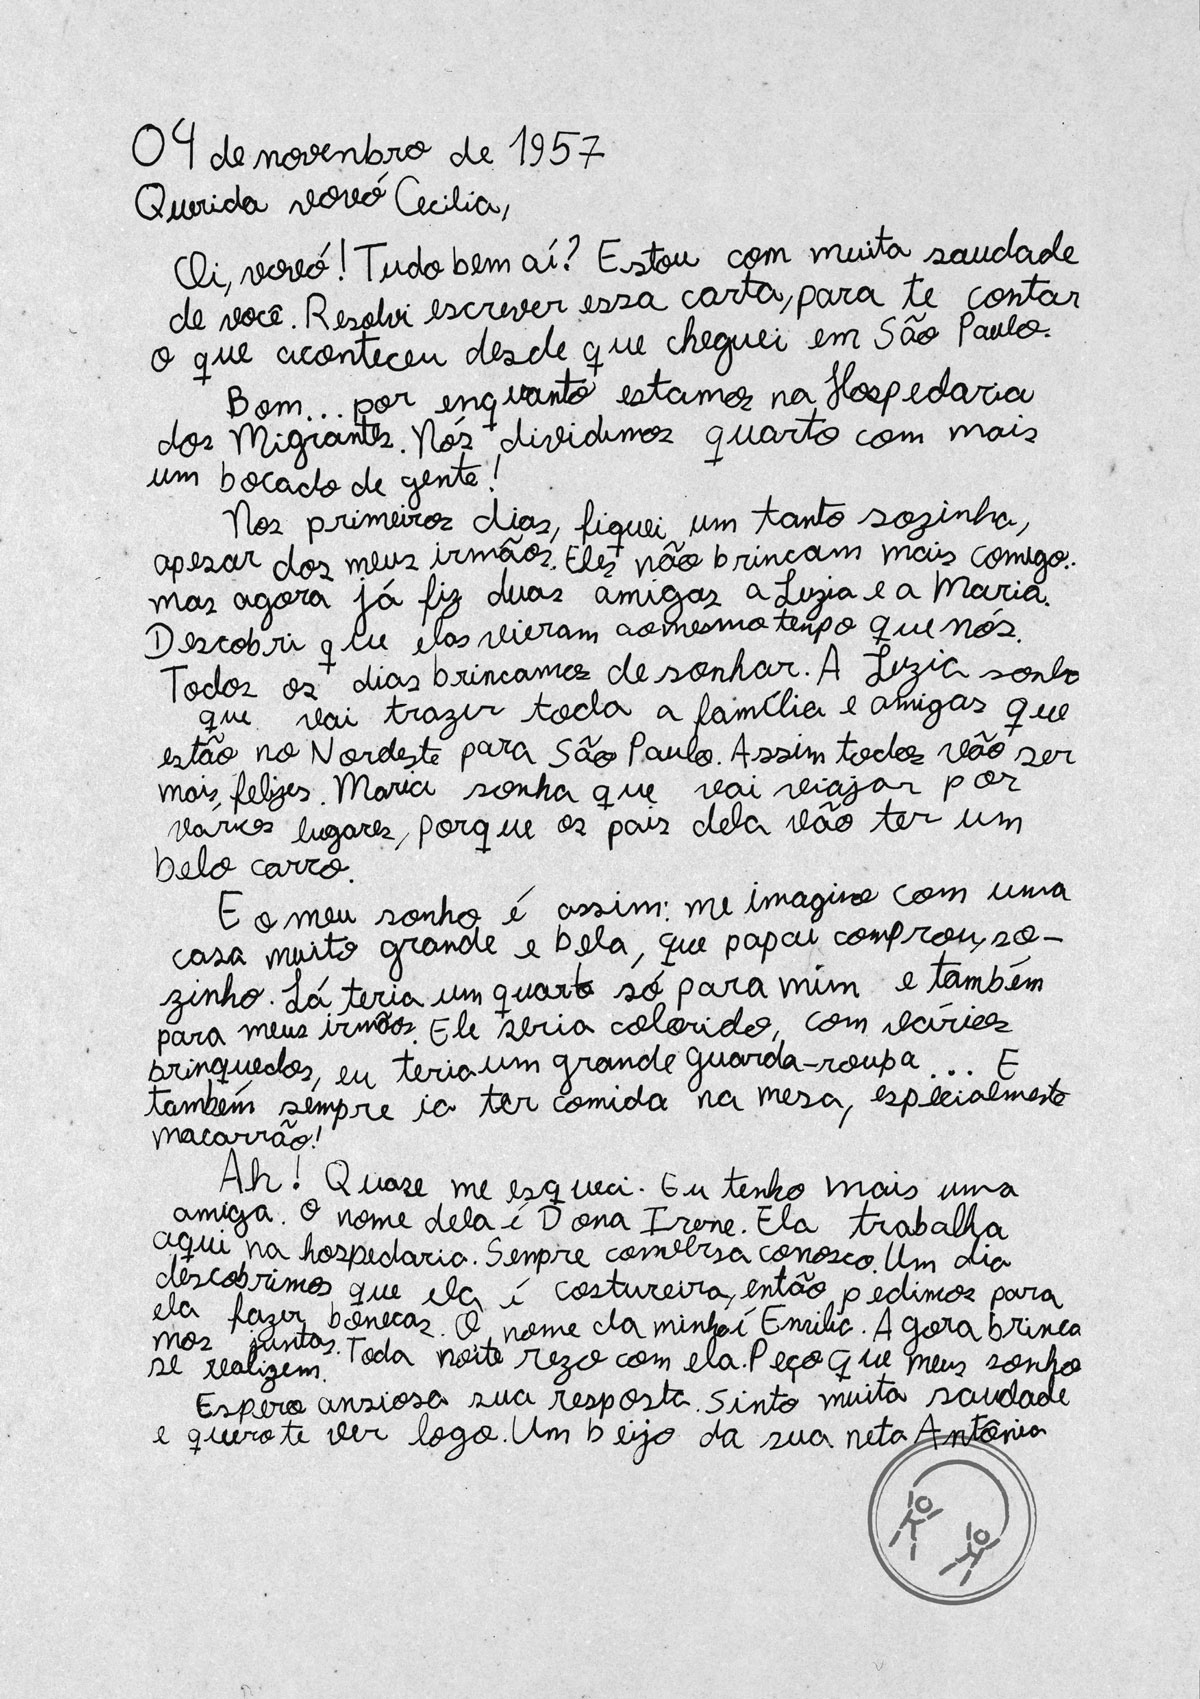 04 de novembro de 1957
Querida vovó Cecilia,
Oi, vovó! Tudo bem aí? Estou com muita saudade
de você. Resolvi escrever essa carta, para te contar
o que aconteceu desde que cheguei em São Paulo.
Bom... por enquanto estamos na Hospedaria
dos Migrantes. Nós dividimos quarto com mais
um bocado de gente!
Nos primeiros dias, fiquei um tanto sozinha,
apesar dos meus irmãos. Eles não brincam mais comigo..
mas agora já fiz duas amigas a Luzia e a Maria.
Descobri que elas vieram ao mesmo tempo que nós.
Todos os dias brincamos de sonhar. A Luzia sonha
que vai trazer toda a família e amigas que
estão no Nordeste para São Paulo. Assim todos vão ser
mais felizes. Maria sonha que vai viajar por
varios lugares, porque os pais dela vão ter um
belo carro.
E o meu sonho é assim: me imagino com uma
casa muito grande e bela, que papai comprou, so-
zinho. Lá teria um quarto só para mim e também
para meus irmãos. Ele seria colorido, com vários
brinquedos, eu teria um grande guarda-roupa... E
também sempre ia ter comida na mesa, especialmente
macarrão!
Ah! Quase me esqueci. Eu tenho mais uma
amiga. O nome dela é Dona Irene. Ela trabalha
aqui na hospedaria. Sempre conversa conosco. Um dia
descobrimos que ela é costureira, então pedimos para
ela fazer bonecas. O nome da minha é Emilia. Agora brinca
mos juntas. Toda noite rezo com ela. Peço que meus sonho
se realizem.
Espero ansiosa sua resposta. Sinto muita saudade
e quero te ver logo. Um beijo da sua neta Antônia